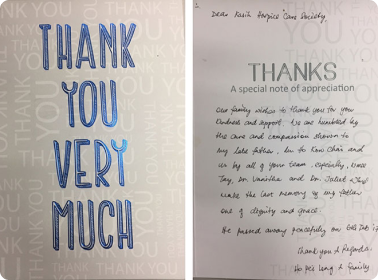 THANK
YOU
VERY
MUCH
Dear Kasih Hospice Care Society
THANKS
A special note of appreciation
Our family wishes to thank you for your
kindness and support. We are humbled by
the care and compassion shown to
my late father, Lu to Kaw Chai and
us by all of your team, especially, 
Jay, Dr. Vanitha and Dr. Juliet
make the last memory of my father
one of dignity and grace.
He passed away peacefully on
Thank you & Regards
Ho Pei Ling & family